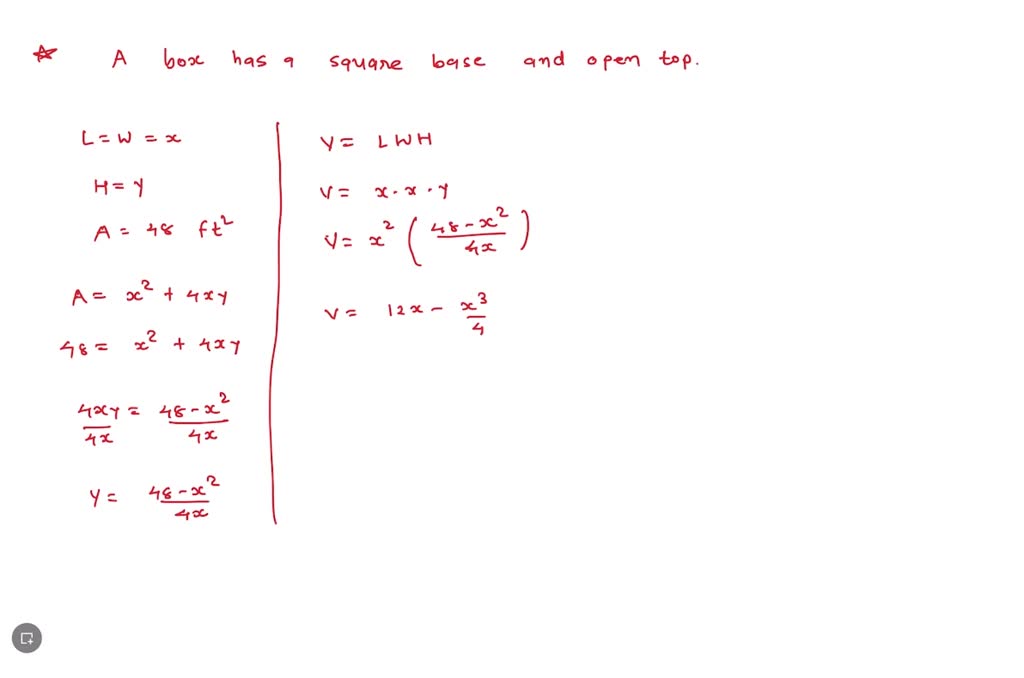 ☆ A box has a square base and open top.
L = W = x
H = y
A = 48 ft²
A = x² + 4xy
48 = x² + 4xy
4xy/4x = (48-x²)/4x
y = (48-x²)/4x
V = LWH
V = x·x·y
V = x² ((48-x²)/4x)
V = 12x - x³/4